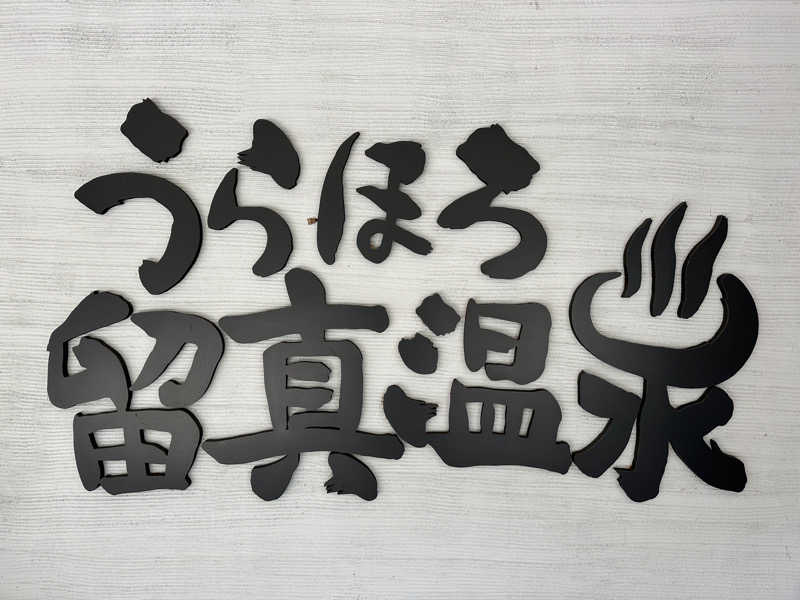 うらほろ
留真温泉